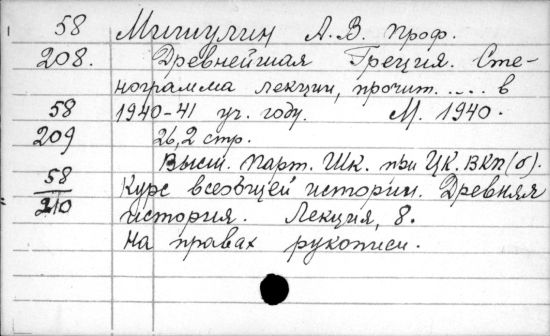 58 Мишулин А. В. проф.
208. Древнейшая Греция. Сте-
нограмма лекции, прочит. . . . в
58 1940-41 уч. году. М. 1940.
209 26,2 стр.
Высш. Парт. Шк. при ЦК. ВКП(б).
58 Курс всеобщей истории. Древняя
210 история. Лекция, 8.
На правах рукописи.